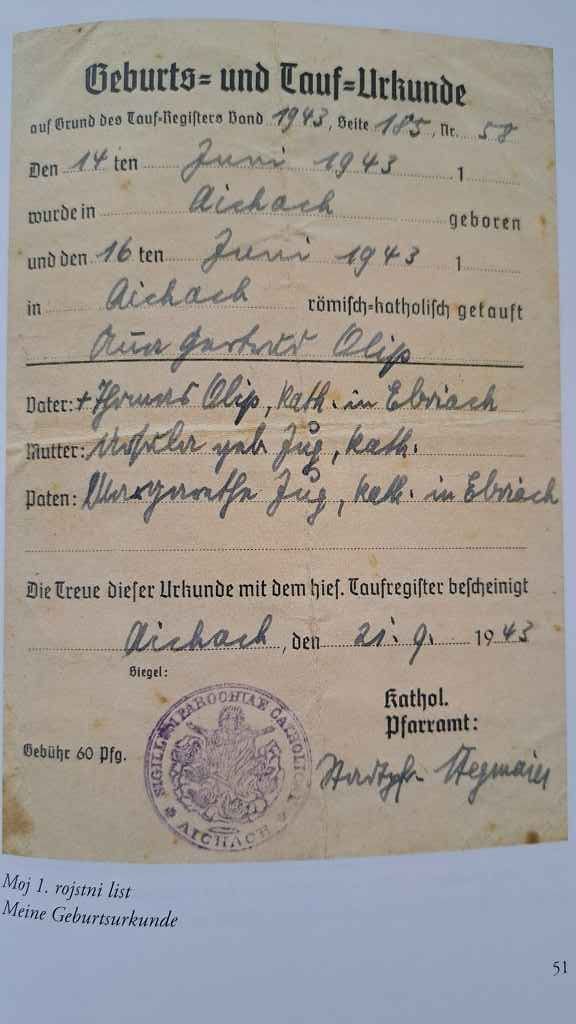 Geburts= und Tauf=Urkunde
auf Grund des Tauf-Registers Band 1943, Seite 185, Nr. 58
Den 14 ten Juni 1943 1
wurde in Aichach geboren
und den 16 ten Juni 1943 1
in Aichach römisch-katholisch getauft
Ana Gertrud Olip
Vater: + Thomas Olip, kath. in Ebriach
Mutter: Ursula geb. Jug, kath.
Paten: Margarethe Jug, kath. in Ebriach
Die Treue dieser Urkunde mit dem hies. Taufregister bescheinigt
Aichach, den 21. 9. 1943
Siegel:
Kathol.
Pfarramt:
Gebühr 60 Pfg.
SIGILLUM PAROCHIAE CATHOLICAE
AICHACH
Stadtpfr. Stegmaier
Moj 1. rojstni list
Meine Geburtsurkunde
51